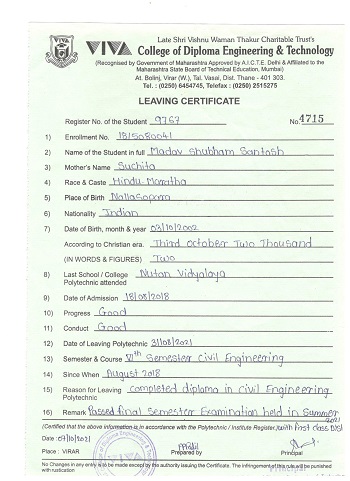 Late Shri Vishnu Waman Thakur Charitable Trust's
VIVA College of Diploma Engineering & Technology
(Recognised by Government of Maharashtra Approved by A.I.C.T.E. Delhi & Affiliated to the
Maharashtra State Board of Technical Education, Mumbai)
At. Bolinj, Virar (W.), Tal. Vasai, Dist. Thane - 401 303.
Tel.: (0250) 6454745, Telefax : (0250) 2515275
LEAVING CERTIFICATE
Register No. of the Student 9767 No. 4715
1) Enrollment No. 1815080041
2) Name of the Student in full Madav Shubham Santosh
3) Mother's Name Suchita
4) Race & Caste Hindu-Maratha
5) Place of Birth Nallasopara
6) Nationality Indian
7) Date of Birth, month & year 03/10/2002
According to Christian era. Third October Two Thousand
(IN WORDS & FIGURES) Two
8) Last School / College Nutan Vidyalaya
Polytechnic attended
9) Date of Admission 18/08/2018
10) Progress Good
11) Conduct Good
12) Date of Leaving Polytechnic 31/08/2021
13) Semester & Course VIth Semester Civil Engineering
14) Since When August 2018
15) Reason for Leaving completed diploma in civil Engineering
Polytechnic
16) Remark Passed final Semester Examination held in Summer 2021
(Certified that the above information is in accordance with the Polytechnic / Institute Register.) with First class Dist
Date : 07/10/2021
Place : VIRAR Prepared by Principal
No Changes in any entry is to be made except by the authority issuing the Certificate. The infringement of this rule will be punished
with rustication